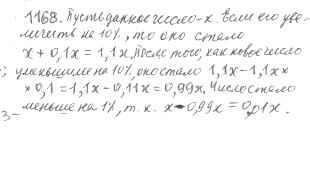 1168. Пусть данное число - х. Если его уве-
личить на 10%, то оно стало
х + 0,1х = 1,1х. После того, как новое число
уменьшили на 10%, оно стало 1,1х - 1,1х ×
× 0,1 = 1,1х - 0,11х = 0,99х. Число стало
меньше на 1%, т. к. х - 0,99х = 0,01х.
з-